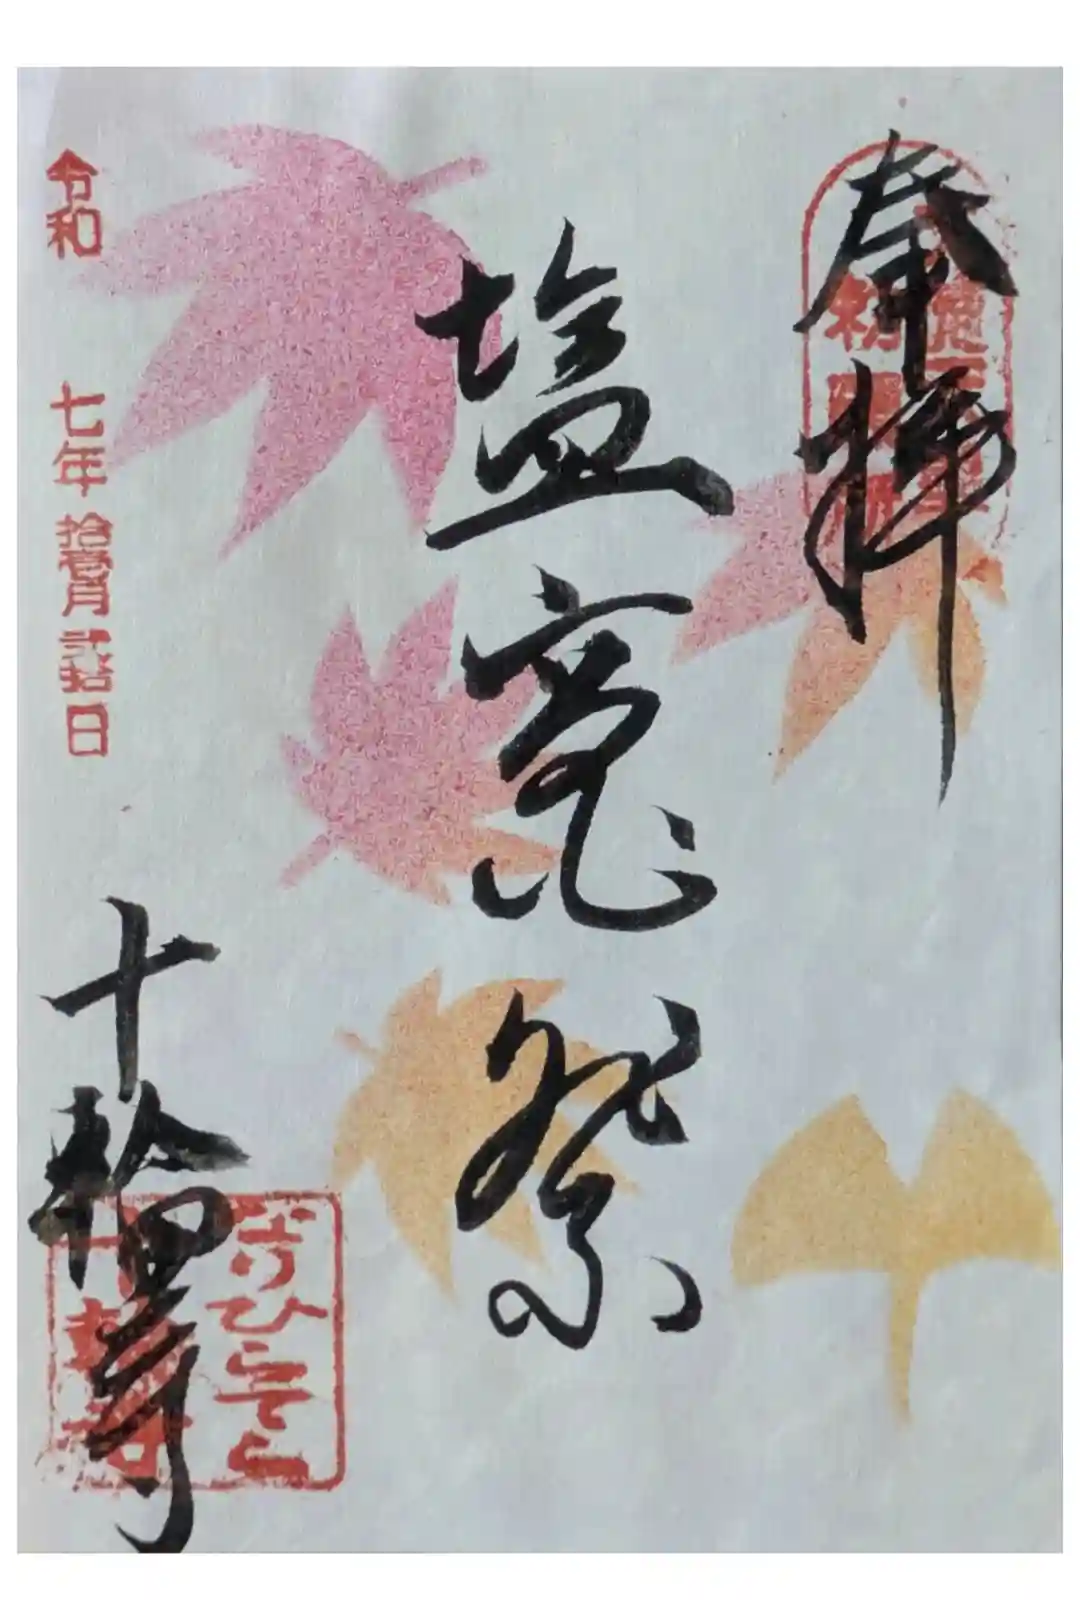 奉拝
塩竈祭
令和 七年 拾壹月 弐拾 日
十輪寺
なりひらてら